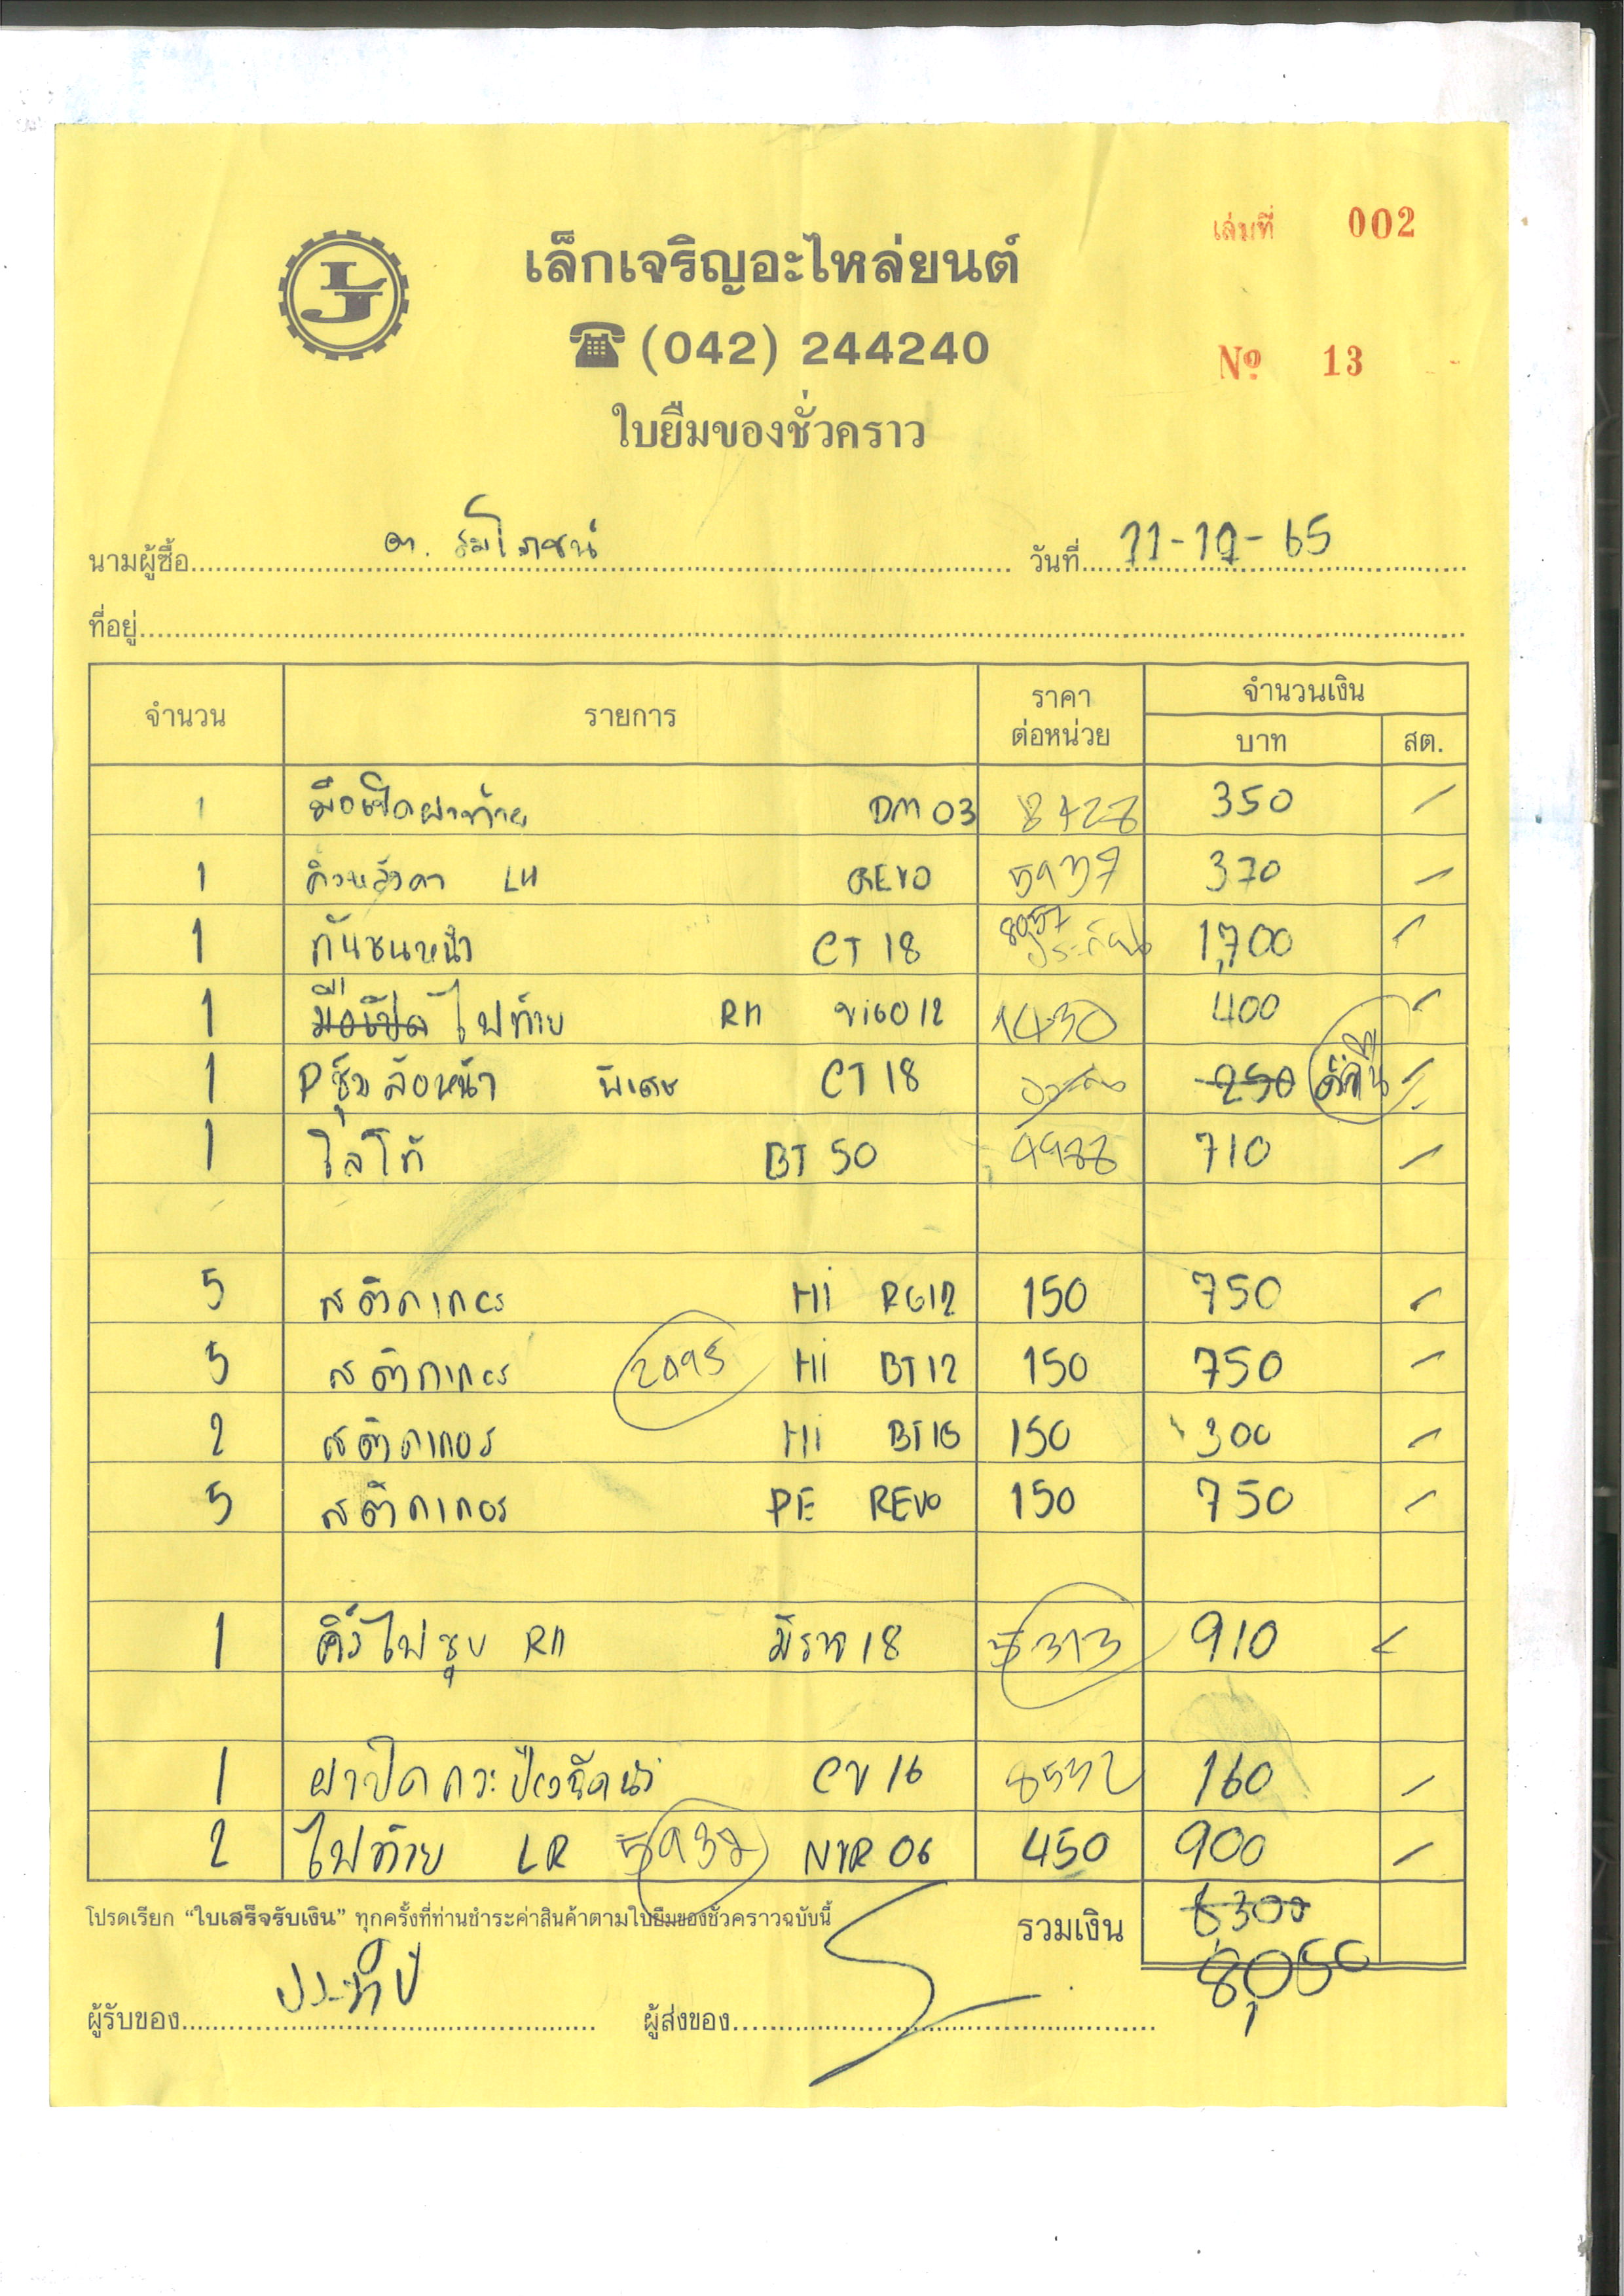 เล่มที่ 002
LJ
เล็กเจริญอะไหล่ยนต์
(042) 244240
Nº 13
ใบยืมของชั่วคราว
นามผู้ซื้อ วันที่ 11-10-65
ที่อยู่
จำนวน รายการ ราคาต่อหน่วย จำนวนเงิน
บาท สต.
1 มือเปิดฝาท้าย DM 03 8428 350
1 คิ้วหลังคา LH REVO 5937 370
1 กันชนหน้า CT 18 8057 1,700
1 มือเปิด ไฟท้าย RH VIGO 12 1430 400
1 Pซุ้มล้อหน้า พิเศษ CT 18 250
1 โลโก้ BT 50 9988 710
5 สติกเกอร์ Hi RG12 150 750
5 สติกเกอร์ 2095 Hi BT12 150 750
2 สติกเกอร์ Hi BT15 150 300
5 สติกเกอร์ PE REVO 150 750
1 คิ้วไฟซุบ RH มิราจ 18 5313 910
1 ฝาปิดกระป๋องฉีดน้ำ CV 16 8532 160
2 ไฟท้าย LR 5932 NVR 06 450 900
โปรดเรียก “ใบเสร็จรับเงิน” ทุกครั้งที่ท่านชำระค่าสินค้าตามใบยืมของชั่วคราวฉบับนี้ รวมเงิน 8,300
8,050
ผู้รับของ ประทีป ผู้ส่งของ